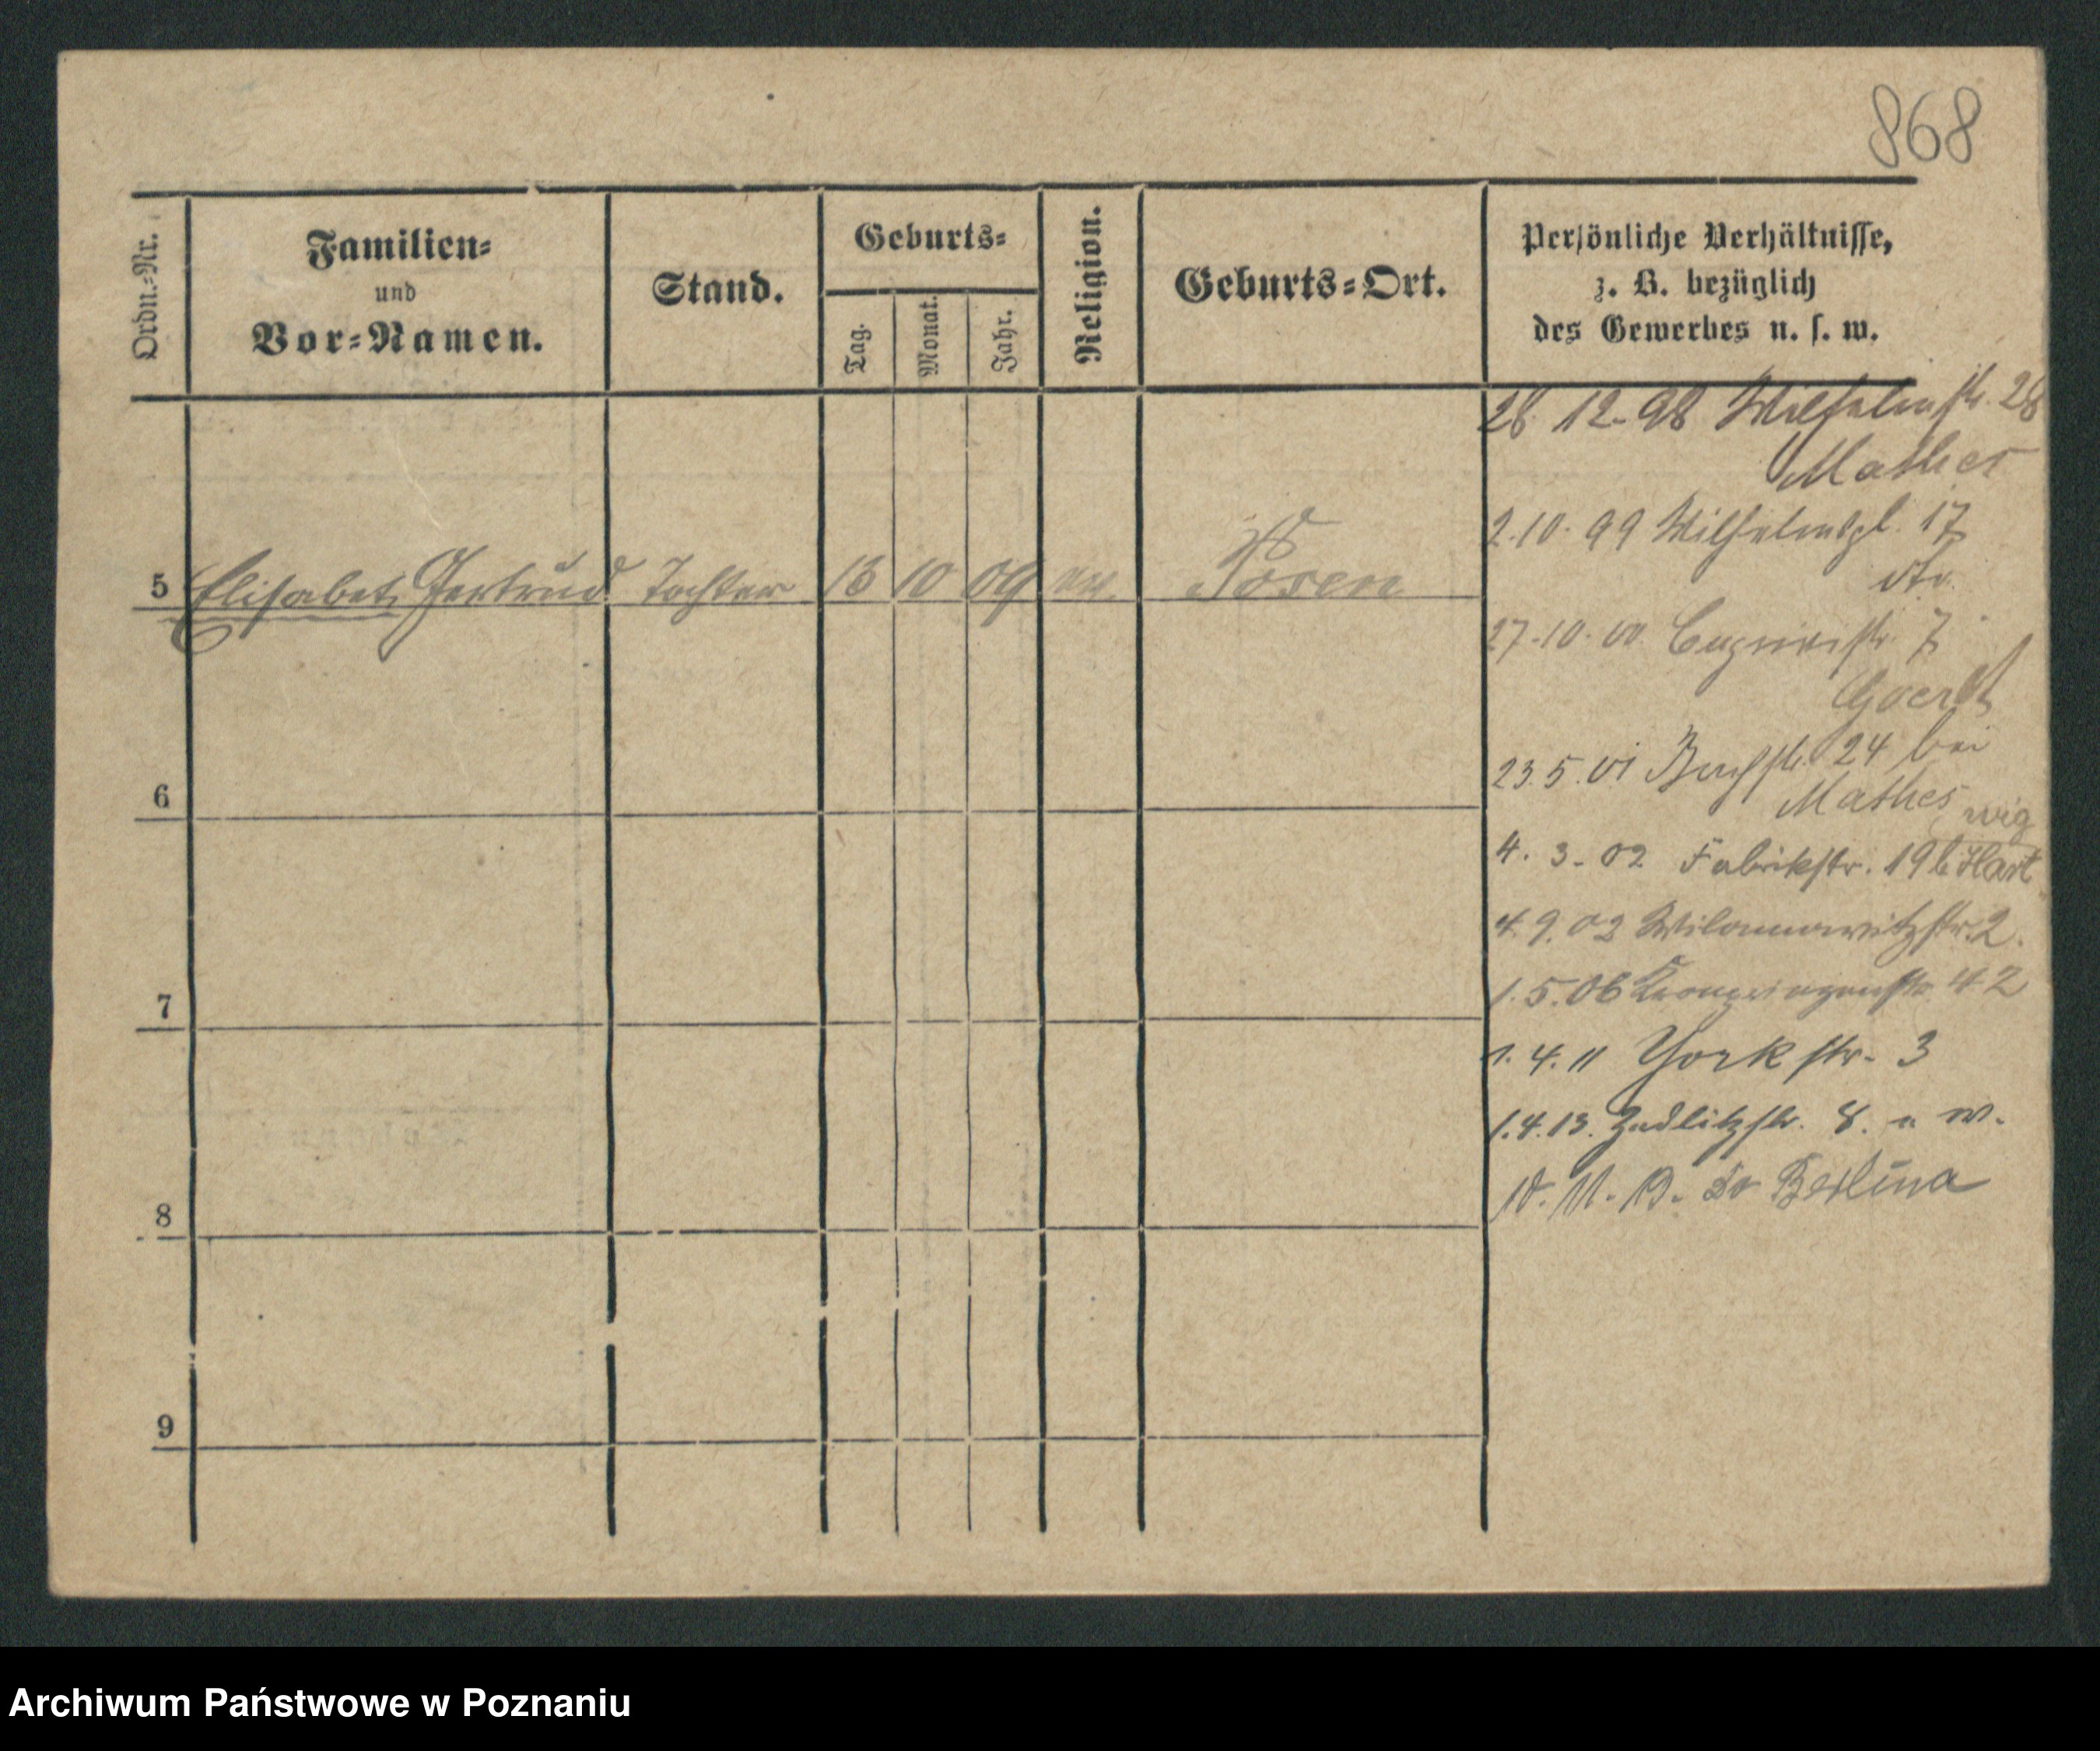 868
Ordn.-Nr.
Familien-
und
Vor-Namen.
Stand.
Geburts-
Tag.
Monat.
Jahr.
Religion.
Geburts-Ort.
Persönliche Verhältnisse,
z. B. bezüglich
des Gewerbes u. s. w.
5 Elisabet Gertrud Tochter 10 09 Posen
6
7
8
9
28 12-98 Wilhelmstr. 28
Mathes
2.10.99 Wilhelmspl. 17
dto.
27.10.00 7
23.5.01 24 bei
Mathes
4. 3. 02 Fabrikstr. 19 b Hart
wig
4 9. 02 Wilamowitzstr. 2.
1.5.06 Kronprinzenstr 42
1. 4. 11 Yorkstr. 3
1.4.13. Zedlitzstr. 8. n W.
10. 11. 19. do Berlina
Archiwum Państwowe w Poznaniu